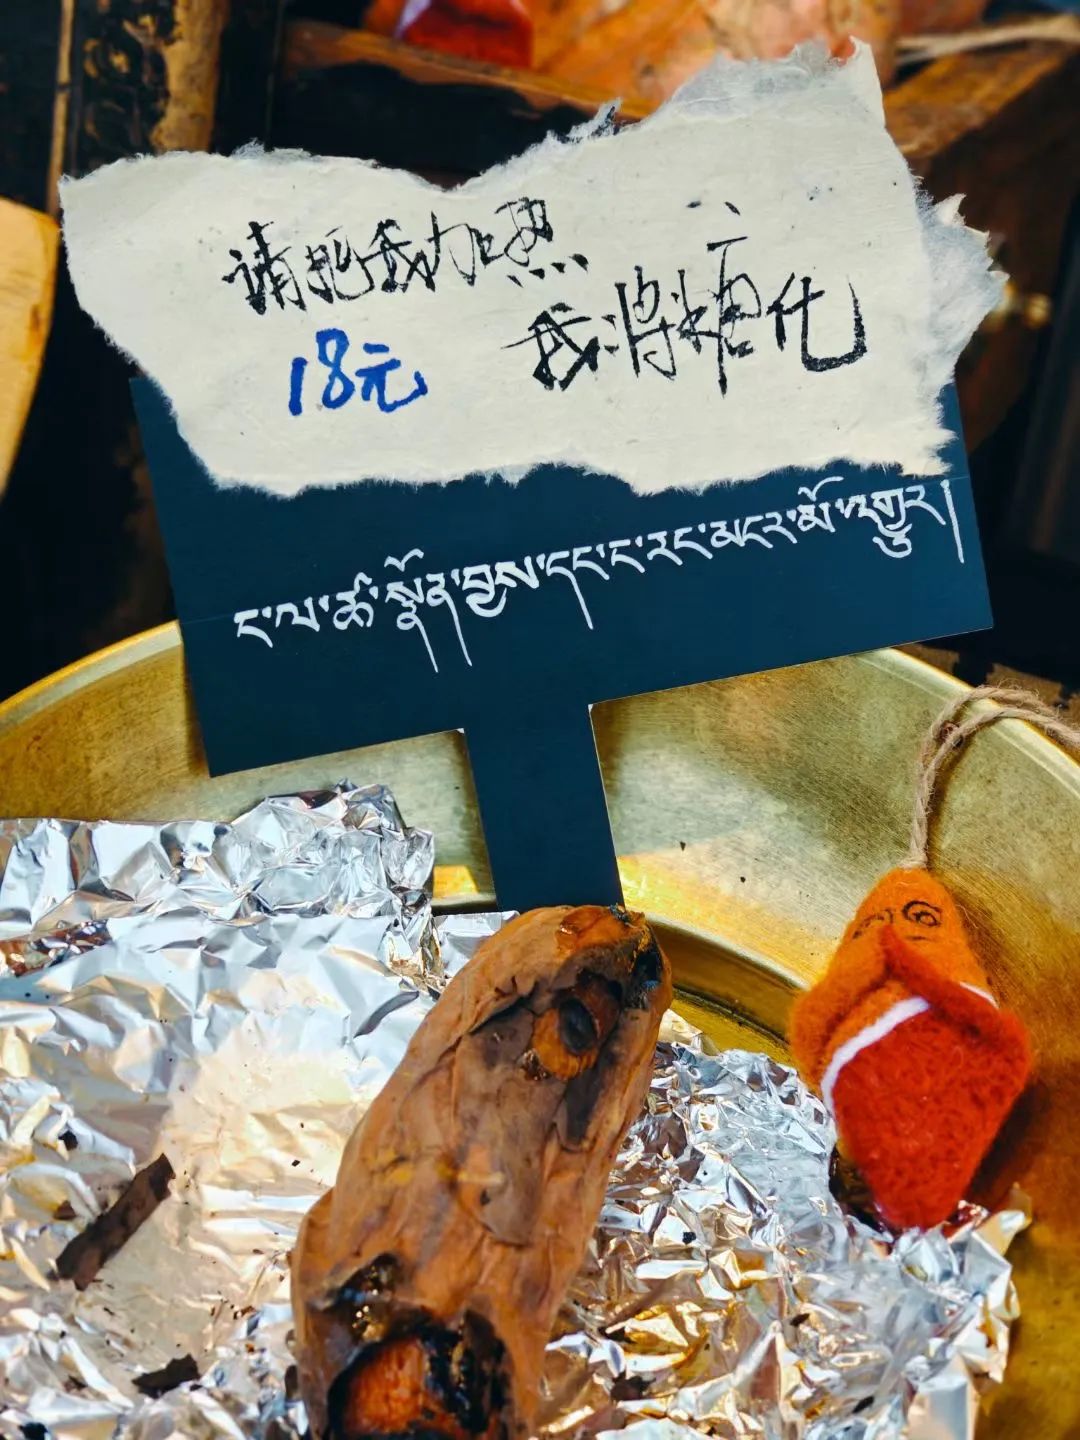 请把我加热
我将糖化
18元
ང་ལ་ཚ་སྣོན་བྱས་དང་ང་རང་མངར་མོ་འགྱུར།